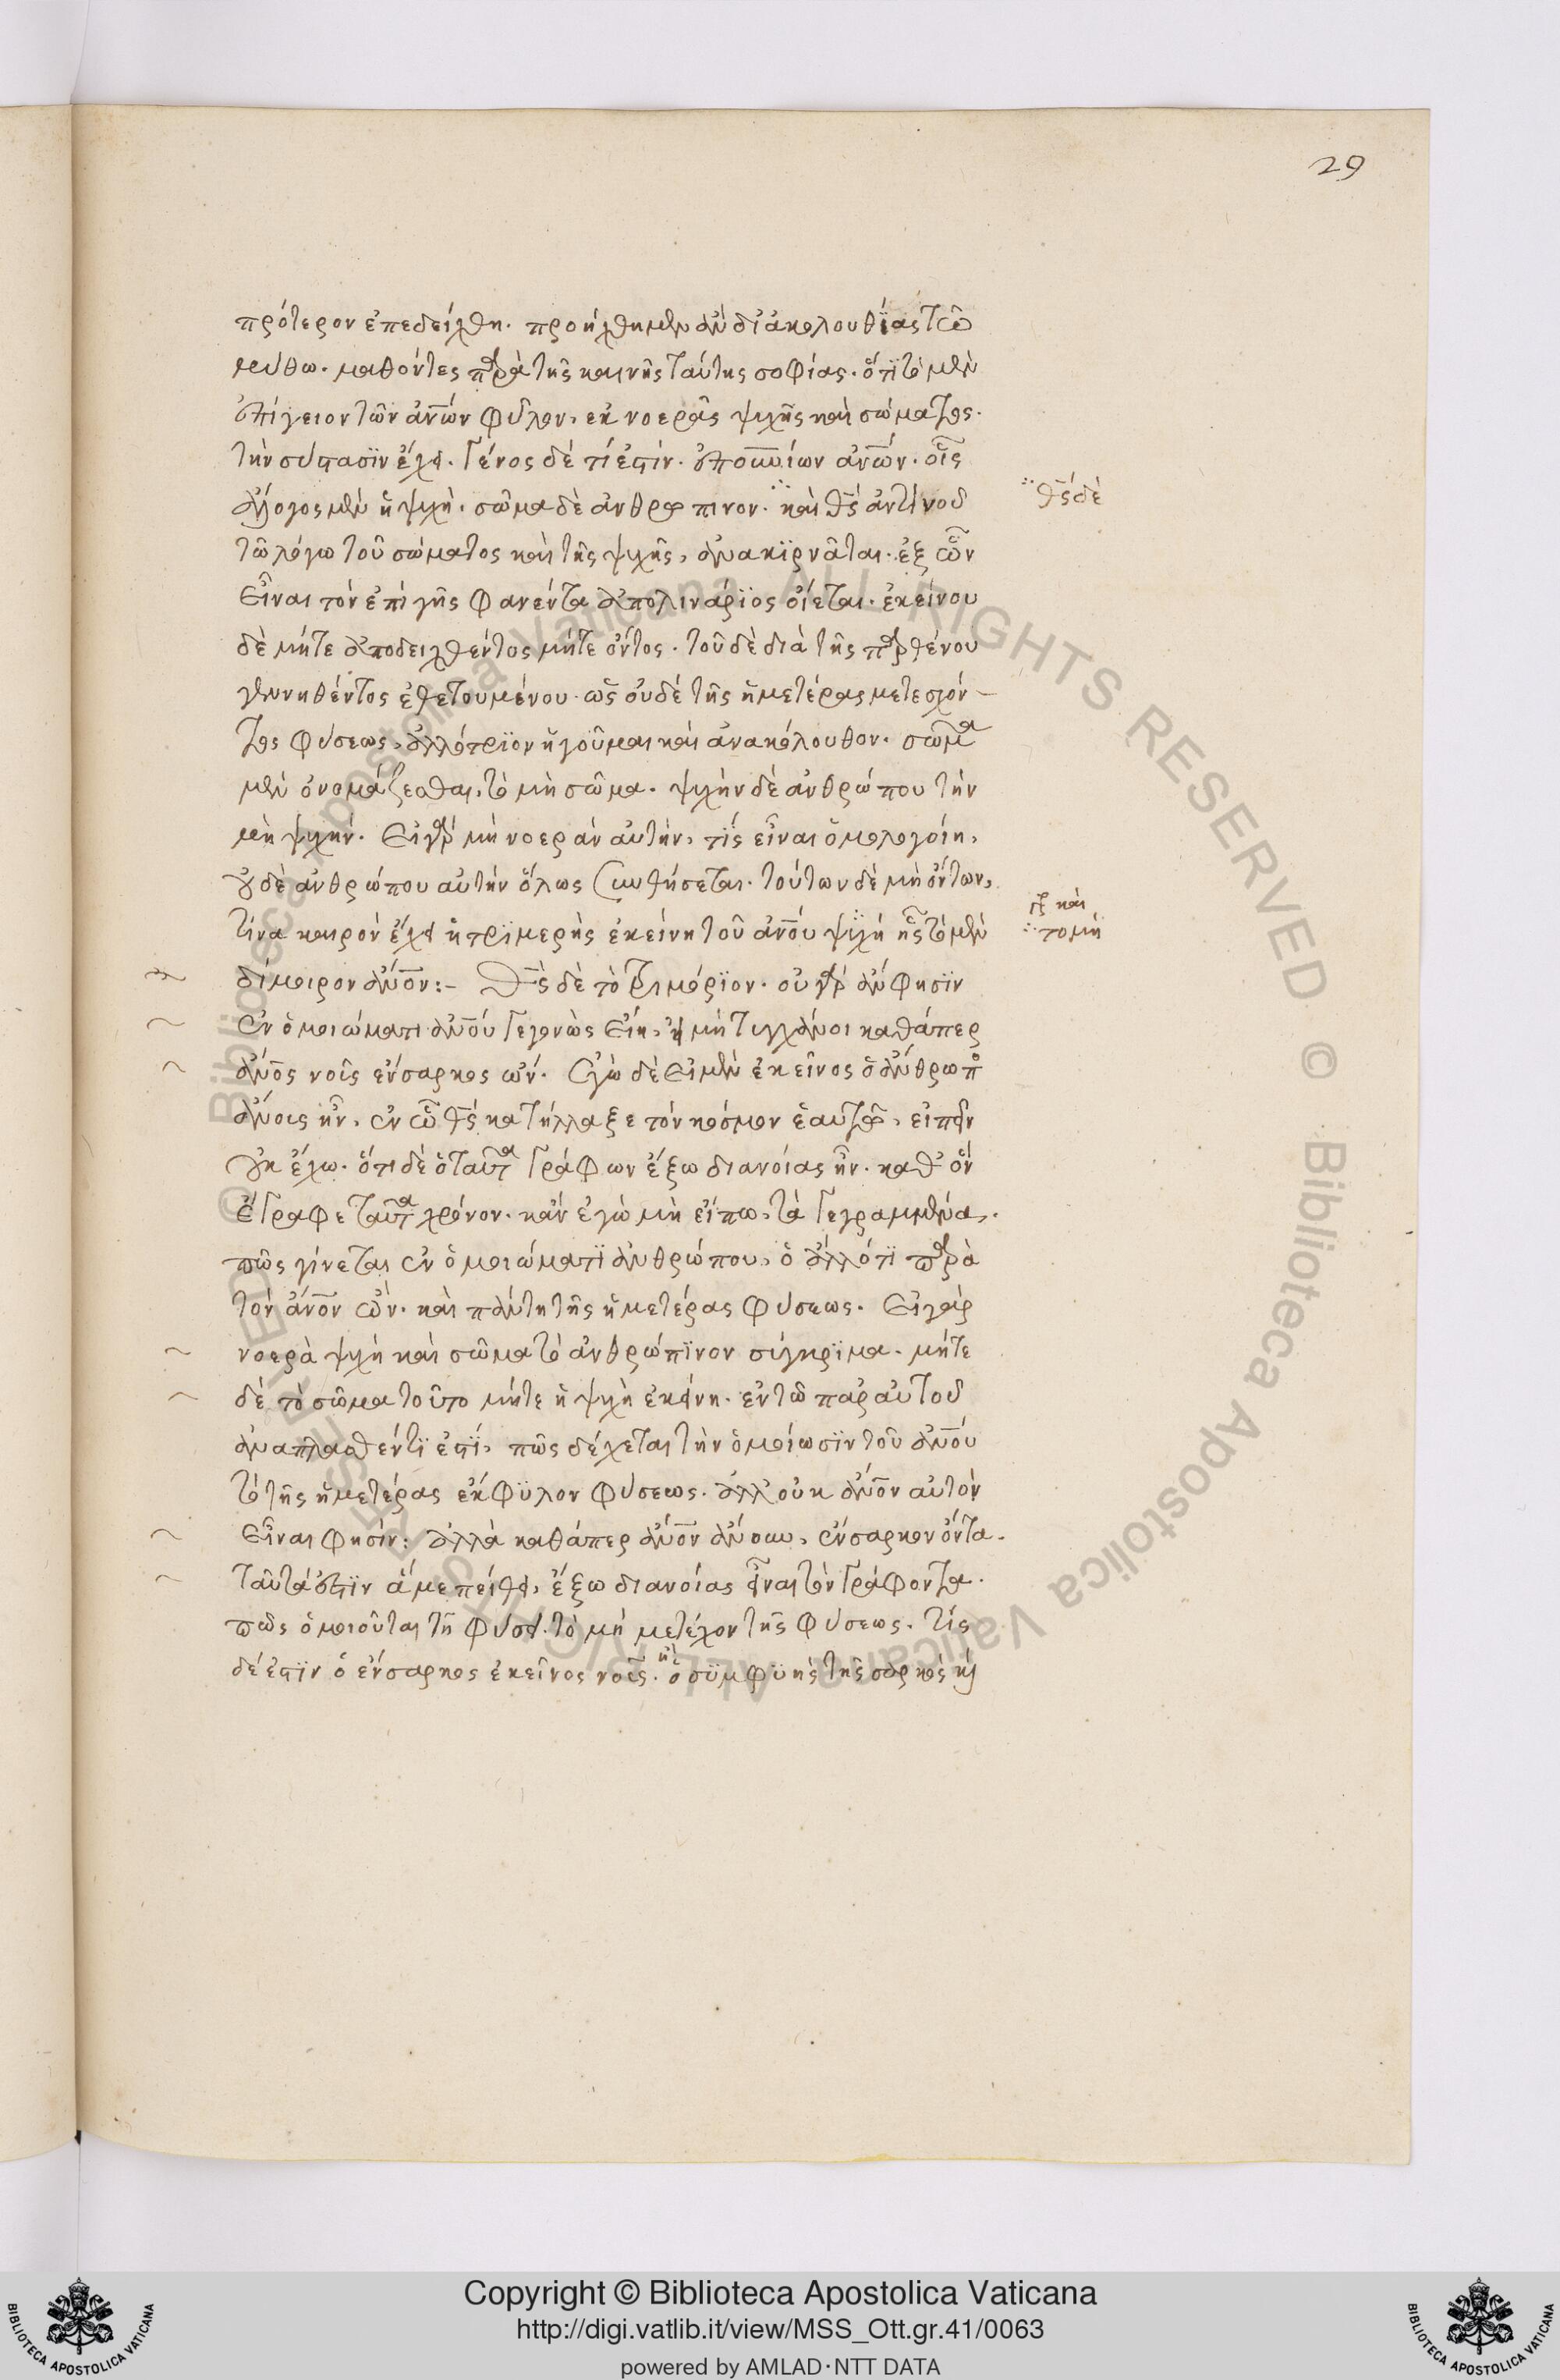 29
πρότερον ἐπεδείχθη. προήχθημεν οὖν δι' ἀκολουθίας τῶ
μύθω. μαθόντες παρὰ τῆς καινῆς ταύτης σοφίας. ὅτι τὸ μὲν
ἐπίγειον τῶν ἀνων φῦλον, ἐκ νοερᾶς ψυχῆς καὶ σώματος.
τὴν σύστασϊν ἔχει. Γένος δέ τί ἐστιν. ἐπουνίων ἀνων. οἷς
ἄλογος μὲν ἡ ψυχὴ. σῶμα δὲ ἀνθρώπινον. καὶ θς ἀντὶ νοῦ
θς δὲ
τῶ λόγω τοῦ σώματος καὶ τῆς ψυχῆς, ἀνακϊρνᾶται. ἐξ ὧν
εἶναι τὸν ἐπὶ γῆς φανέντα ἀπολινάρϊος οἴεται. ἐκείνου
δὲ μήτε ἀποδειχθέντος μήτε ὄντος. τοῦ δὲ διὰ τῆς παρθένου
γεννηθέντος ἀθετουμένου. ὡς οὐδὲ τῆς ἡμετέρας μετεσχόν-
τος φύσεως, ἀλλότρϊον ἡγοῦμαι καὶ ἀνακόλουθον. σῶμα
μὲν ὀνομάζεσθαι, τὸ μὴ σῶμα. ψυχὴν δὲ ἀνθρώπου τὴν
μὴ ψυχήν. Εἰ γὰρ μὴ νοερὰν αὐτὴν, τίς εἶναι ὁμολογοίη,
οὐδὲ ἀνθρώπου αὐτὴν ὅλως συνθήσεται. τούτων δὲ μὴ ὄντων,
τίνα καιρὸν ἔχει ἡ τρϊμερὴς ἐκείνη τοῦ ἀνου ψυχὴ ἧς τὸ μὲν
καὶ
τομὴ
δίμοιρον ἀνον:- Θς δὲ τὸ τριμόρϊον. οὐ γὰρ ἂν φησὶν
ἐν ὁμοιώματι ἀνου Γεγονὼς εἴη, εἰ μὴ τυγχάνοι καθάπερ
ἀνος νοῦς ἔνσαρκος ὤν. Ἐγὼ δὲ εἰ μὲν ἐκεῖνος ὁ ἄνθρωπο
ἄνους ἦν, ἐν ὧ θς κατήλλαξε τὸν κόσμον ἑαυτῶ, εἰπεῖν
οὐκ ἔχω. ὅτι δὲ ὁ ταῦτα Γράφων ἔξω διανοίας ἦν. καθ' ὃν
ἔΓραφε ταῦτα χρόνον. κἂν ἐγὼ μὴ εἴπω, τὰ Γεγραμμένα,.
πῶς γίνεται ἐν ὁμοιώματϊ ἀνθρώπου, ὁ ἄλλό τϊ παρὰ
τὸν ἄνον ὤν. καὶ πάντη τῆς ἡμετέρας φύσεως. Εἰ γὰρ
νοερὰ ψυχὴ καὶ σῶμα τὸ ἀνθρώπϊνον σύγκρϊμα. μήτε
δὲ τὸ σῶμα τοῦτο μήτε ἡ ψυχὴ ἐκείνη. ἐν τῶ παρ' αὐτοῦ
ἀναπλασθέντϊ ἐστϊ, πῶς δέχεται τὴν ὁμοίωσϊν τοῦ ἀνου
τὸ τῆς ἡμετέρας ἔκφϋλον φύσεως. ἀλλ' οὐκ ἄνον αὐτὸν
εἶναι φησὶν: ἀλλὰ καθάπερ ἄνον ἄνουν, ἔνσαρκον ὄντα.
Ταῦτά ἐστϊν ἅ με πείθει, ἔξω διανοίας εἶναι τὸν Γράφοντα.
πῶς ὁμοιοῦται τῆ φύσει. τὸ μὴ μετέχον τῆς φύσεως. τίς
δέ ἐστϊν ὁ ἔνσαρκος ἐκεῖνος νοῦς. ἢ ὁ σϋμφϋὴς τῆς σαρκὸς καὶ
Copyright © Biblioteca Apostolica Vaticana
http://digi.vatlib.it/view/MSS_Ott.gr.41/0063
powered by AMLAD·NTT DATA